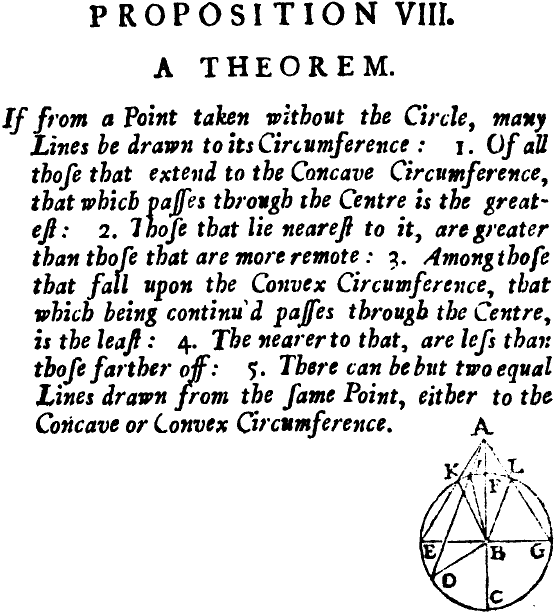 PROPOSITION VIII.
A THEOREM.
If from a Point taken without the Circle, many
Lines be drawn to its Circumference : 1. Of all
thoſe that extend to the Concave Circumference,
that which paſſes through the Centre is the great-
eſt : 2. Thoſe that lie neareſt to it, are greater
than thoſe that are more remote : 3. Among thoſe
that fall upon the Convex Circumference, that
which being continu'd paſſes through the Centre,
is the leaſt : 4. The nearer to that, are leſs than
thoſe farther off : 5. There can be but two equal
Lines drawn from the ſame Point, either to the
Concave or Convex Circumference.
A
K I F L
E B G
D
C